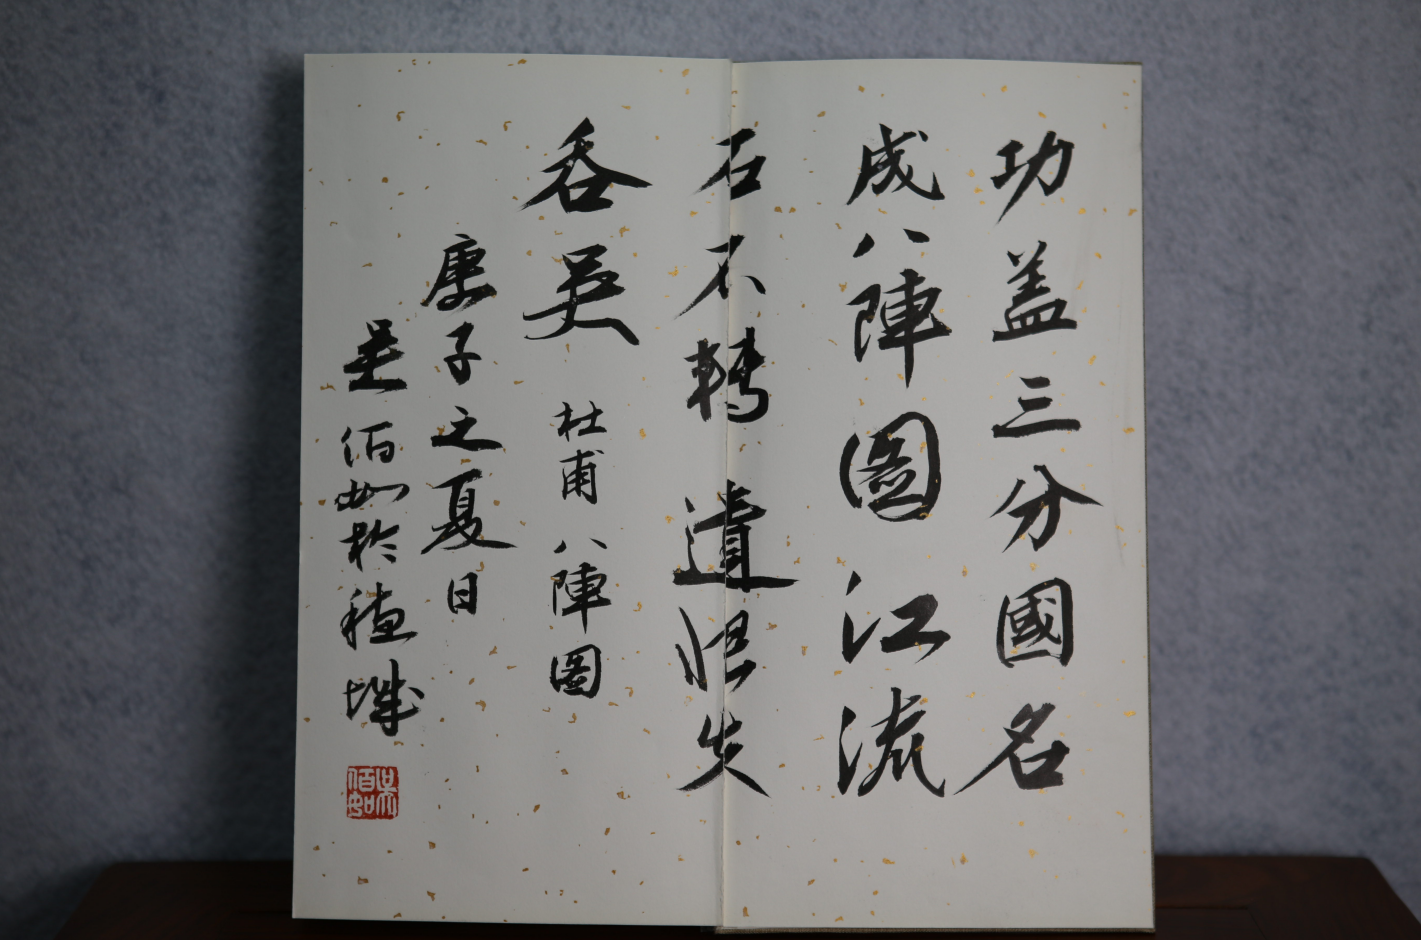 功盖三分國名
成八陣圖江流
石不轉遺恨失
吞吴
杜甫八陣圖
庚子之夏日
吴佰如於穗城
吴佰如